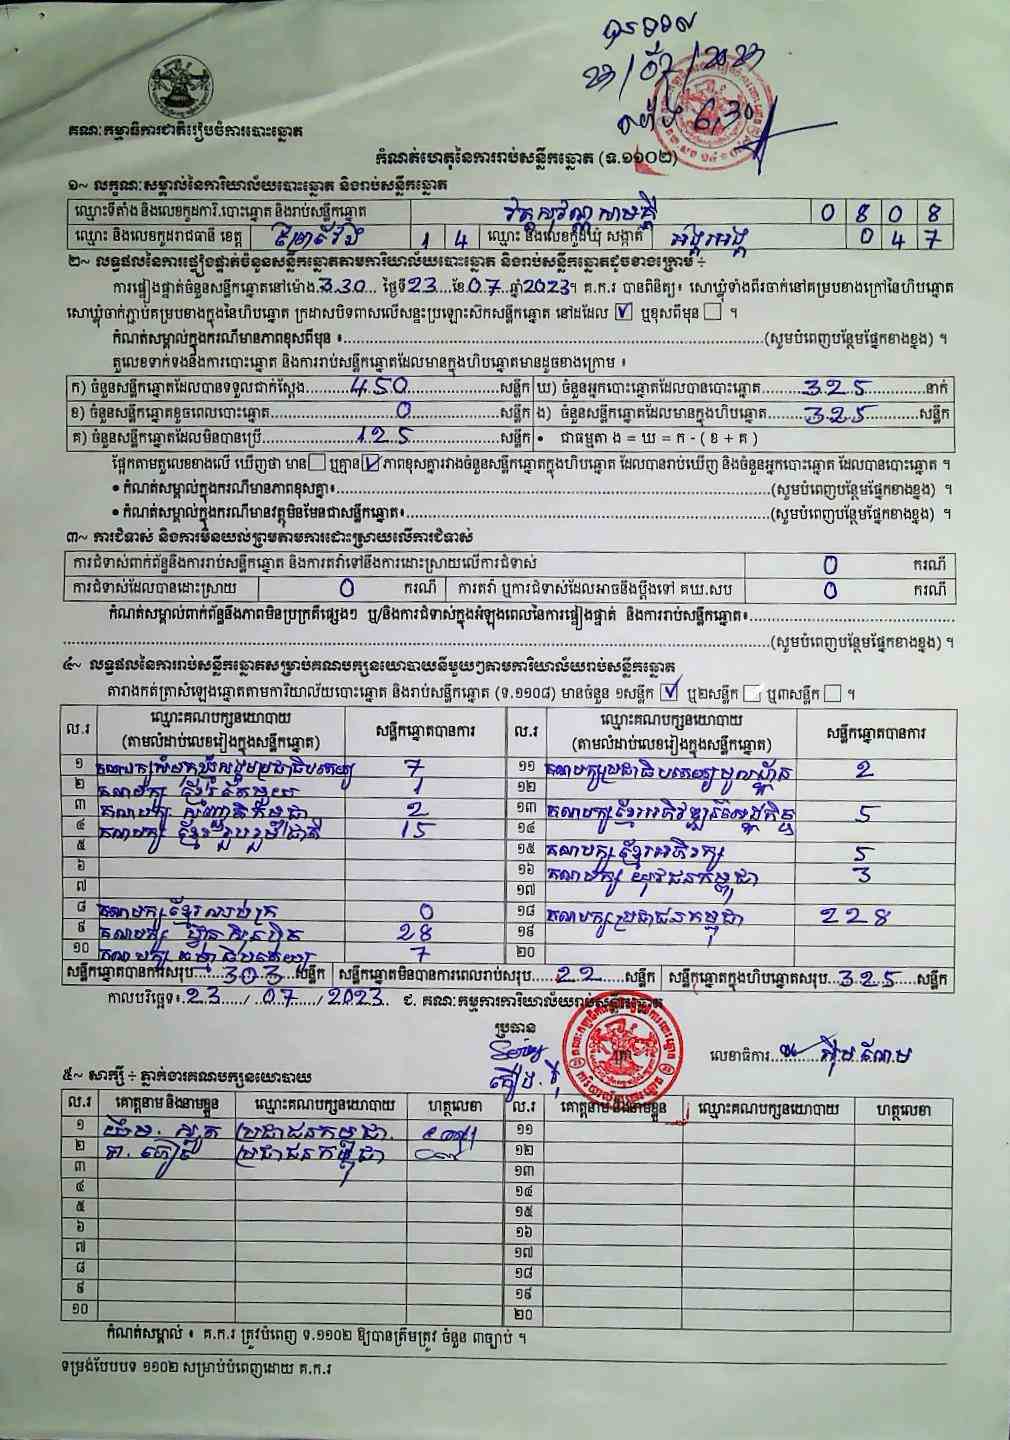 បានទទួល
២៣/០៧/២០២៣
ម៉ោង 6,30
គណៈកម្មាធិការជាតិរៀបចំការបោះឆ្នោត
កំណត់ហេតុនៃការរាប់សន្លឹកឆ្នោត (ទ.១១០២)
១~ លក្ខណៈសម្គាល់នៃការិយាល័យបោះឆ្នោត និងរាប់សន្លឹកឆ្នោត
ឈ្មោះទីតាំង និងលេខកូដការិ.បោះឆ្នោត និងរាប់សន្លឹកឆ្នោត វត្តសុវណ្ណសាមគ្គី 0 8 0 8
ឈ្មោះ និងលេខកូដរាជធានី ខេត្ត ព្រៃវែង 1 4 ឈ្មោះ និងលេខកូដឃុំ សង្កាត់ អង្គរអង្គ 0 4 7
២~ លទ្ធផលនៃការផ្ទៀងផ្ទាត់ចំនួនសន្លឹកឆ្នោតតាមការិយាល័យបោះឆ្នោត និងរាប់សន្លឹកឆ្នោតដូចខាងក្រោម ÷
ការផ្ទៀងផ្ទាត់ចំនួនសន្លឹកឆ្នោតនៅម៉ោង 3.30 ថ្ងៃទី 23 ខែ 0.7 ឆ្នាំ 2023។ គ.ក.រ បានពិនិត្យ៖ សោឃ្លុំទាំងពីរចាក់នៅគម្របខាងក្រៅនៃហិបឆ្នោត
សោឃ្លុំចាក់ភ្ជាប់គម្របខាងក្នុងនៃហិបឆ្នោត ក្រដាសបិទពាសលើសន្ទះប្រឡោះសឹកសន្លឹកឆ្នោត នៅដដែល ☑ ឬខុសពីមុន ☐ ។
កំណត់សម្គាល់ក្នុងករណីមានភាពខុសពីមុន ៖ (សូមបំពេញបន្ថែមផ្នែកខាងខ្នង) ។
តួលេខទាក់ទងនឹងការបោះឆ្នោត និងការរាប់សន្លឹកឆ្នោតដែលមានក្នុងហិបឆ្នោតមានដូចខាងក្រោម ៖
ក) ចំនួនសន្លឹកឆ្នោតដែលបានទទួលជាក់ស្តែង 450 សន្លឹក ឃ) ចំនួនអ្នកបោះឆ្នោតដែលបានបោះឆ្នោត 325 នាក់
ខ) ចំនួនសន្លឹកឆ្នោតខូចពេលបោះឆ្នោត 0 សន្លឹក ង) ចំនួនសន្លឹកឆ្នោតដែលមានក្នុងហិបឆ្នោត 325 សន្លឹក
គ) ចំនួនសន្លឹកឆ្នោតដែលមិនបានប្រើ 125 សន្លឹក • ជាធម្មតា ង = ឃ = ក - ( ខ + គ )
ផ្អែកតាមតួលេខខាងលើ ឃើញថា មាន ☐ ឬគ្មាន ☑ ភាពខុសគ្នារវាងចំនួនសន្លឹកឆ្នោតក្នុងហិបឆ្នោត ដែលបានរាប់ឃើញ និងចំនួនអ្នកបោះឆ្នោត ដែលបានបោះឆ្នោត ។
• កំណត់សម្គាល់ក្នុងករណីមានភាពខុសគ្នា៖ (សូមបំពេញបន្ថែមផ្នែកខាងខ្នង) ។
• កំណត់សម្គាល់ក្នុងករណីមានវត្ថុមិនមែនជាសន្លឹកឆ្នោត៖ (សូមបំពេញបន្ថែមផ្នែកខាងខ្នង) ។
៣~ ការជំទាស់ និងការមិនយល់ព្រមតាមការដោះស្រាយលើការជំទាស់
ការជំទាស់ពាក់ព័ន្ធនឹងការរាប់សន្លឹកឆ្នោត និងការតវ៉ាទៅនឹងការដោះស្រាយលើការជំទាស់ 0 ករណី
ការជំទាស់ដែលបានដោះស្រាយ 0 ករណី ការតវ៉ា ឬការជំទាស់ដែលអាចនឹងប្តឹងទៅ គឃ.សប 0 ករណី
កំណត់សម្គាល់ពាក់ព័ន្ធនឹងភាពមិនប្រក្រតីផ្សេងៗ ឬ/និងការជំទាស់ក្នុងអំឡុងពេលនៃការផ្ទៀងផ្ទាត់ និងការរាប់សន្លឹកឆ្នោត៖
(សូមបំពេញបន្ថែមផ្នែកខាងខ្នង) ។
៤~ លទ្ធផលនៃការរាប់សន្លឹកឆ្នោតសម្រាប់គណបក្សនយោបាយនីមួយៗតាមការិយាល័យរាប់សន្លឹកឆ្នោត
តារាងកត់ត្រាសំឡេងឆ្នោតតាមការិយាល័យបោះឆ្នោត និងរាប់សន្លឹកឆ្នោត (ទ.១១០៨) មានចំនួន ១សន្លឹក ☑ ឬ២សន្លឹក ☐ ឬ៣សន្លឹក ☐ ។
ល.រ ឈ្មោះគណបក្សនយោបាយ (តាមលំដាប់លេខរៀងក្នុងសន្លឹកឆ្នោត) សន្លឹកឆ្នោតបានការ ល.រ ឈ្មោះគណបក្សនយោបាយ (តាមលំដាប់លេខរៀងក្នុងសន្លឹកឆ្នោត) សន្លឹកឆ្នោតបានការ
១ គណបក្សសំបុកឃ្មុំសង្គមប្រជាធិបតេយ្យ 7 ១១ គណបក្សប្រជាធិបតេយ្យមូលដ្ឋាន 2
២ គណបក្ស ខ្មែរតែមួយ 1 ១២
៣ គណបក្ស សញ្ជាតិកម្ពុជា 2 ១៣ គណបក្សខ្មែរអភិវឌ្ឍន៍សេដ្ឋកិច្ច 5
៤ គណបក្ស ខ្មែររួបរួមជាតិ 15 ១៤
៥ ១៥ គណបក្សខ្មែរអភិរក្ស 5
៦ ១៦ គណបក្ស យុវជនកម្ពុជា 3
៧ ១៧
៨ គណបក្សខ្មែរឈប់ក្រ 0 ១៨ គណបក្សប្រជាជនកម្ពុជា 228
៩ គណបក្ស ហ្វ៊ុនស៊ិនប៉ិច 28 ១៩
១០ គណបក្ស ធម្មាធិបតេយ្យ 7 ២០
សន្លឹកឆ្នោតបានការសរុប 303 សន្លឹក សន្លឹកឆ្នោតមិនបានការពេលរាប់សរុប 22 សន្លឹក សន្លឹកឆ្នោតក្នុងហិបឆ្នោតសរុប 325 សន្លឹក
កាលបរិច្ឆេទ៖ 23 / 07 / 2023 ជ. គណៈកម្មការការិយាល័យរាប់សន្លឹកឆ្នោត
ប្រធាន
លេខាធិការ
៥~ សាក្សី ÷ ភ្នាក់ងារគណបក្សនយោបាយ
ល.រ គោត្តនាម និងនាមខ្លួន ឈ្មោះគណបក្សនយោបាយ ហត្ថលេខា ល.រ គោត្តនាម និងនាមខ្លួន ឈ្មោះគណបក្សនយោបាយ ហត្ថលេខា
១ ប្រជាជនកម្ពុជា ១១
២ ប្រជាជនកម្ពុជា ១២
៣ ១៣
៤ ១៤
៥ ១៥
៦ ១៦
៧ ១៧
៨ ១៨
៩ ១៩
១០ ២០
កំណត់សម្គាល់ ៖ គ.ក.រ ត្រូវបំពេញ ទ.១១០២ ឱ្យបានត្រឹមត្រូវ ចំនួន ៣ច្បាប់ ។
ទម្រង់បែបបទ ១១០២ សម្រាប់បំពេញដោយ គ.ក.រ